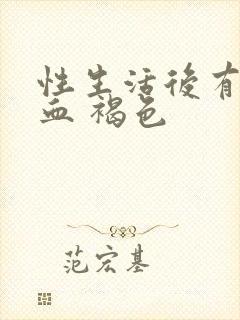 性生活後有
血 褐色
范宏基